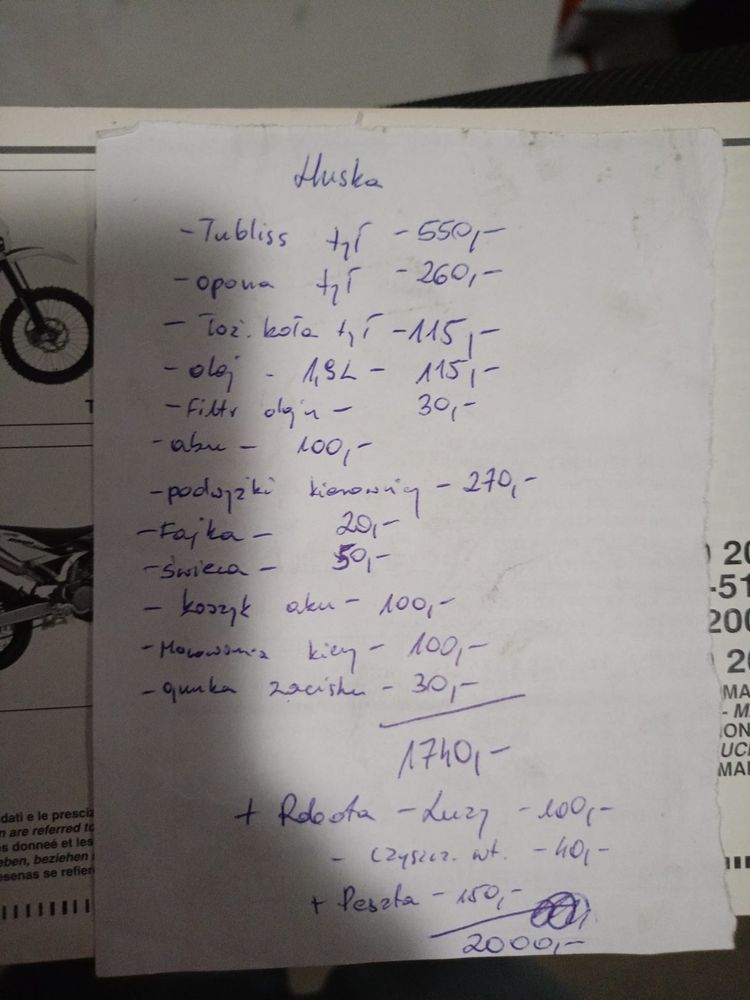 Huska
- Tubliss tył - 550,-
- opona tył - 260,-
- Łoż. koła tył - 115,-
- olej - 1,9L - 115,-
- Filtr oleju - 30,-
- aku - 100,-
- podwyżki kierownicy - 270,-
- Fajka - 20,-
- świeca - 50,-
- koszyk aku - 100,-
- Mocowania kiery - 100,-
- gumka zacisku - 30,-
1740,-
+ Robota - Luzy - 100,-
- czyszcz. wt. - 40,-
+ Reszta - 150,-
2000,-
T
20
-51
200
20
MA
- M
ION
UCI
MAI
dati e le presciz
n are referred to
s donneé et les
eben, beziehen
esenas se refier